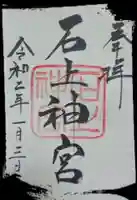 奉拝
石上神宮
令和二年一月二日